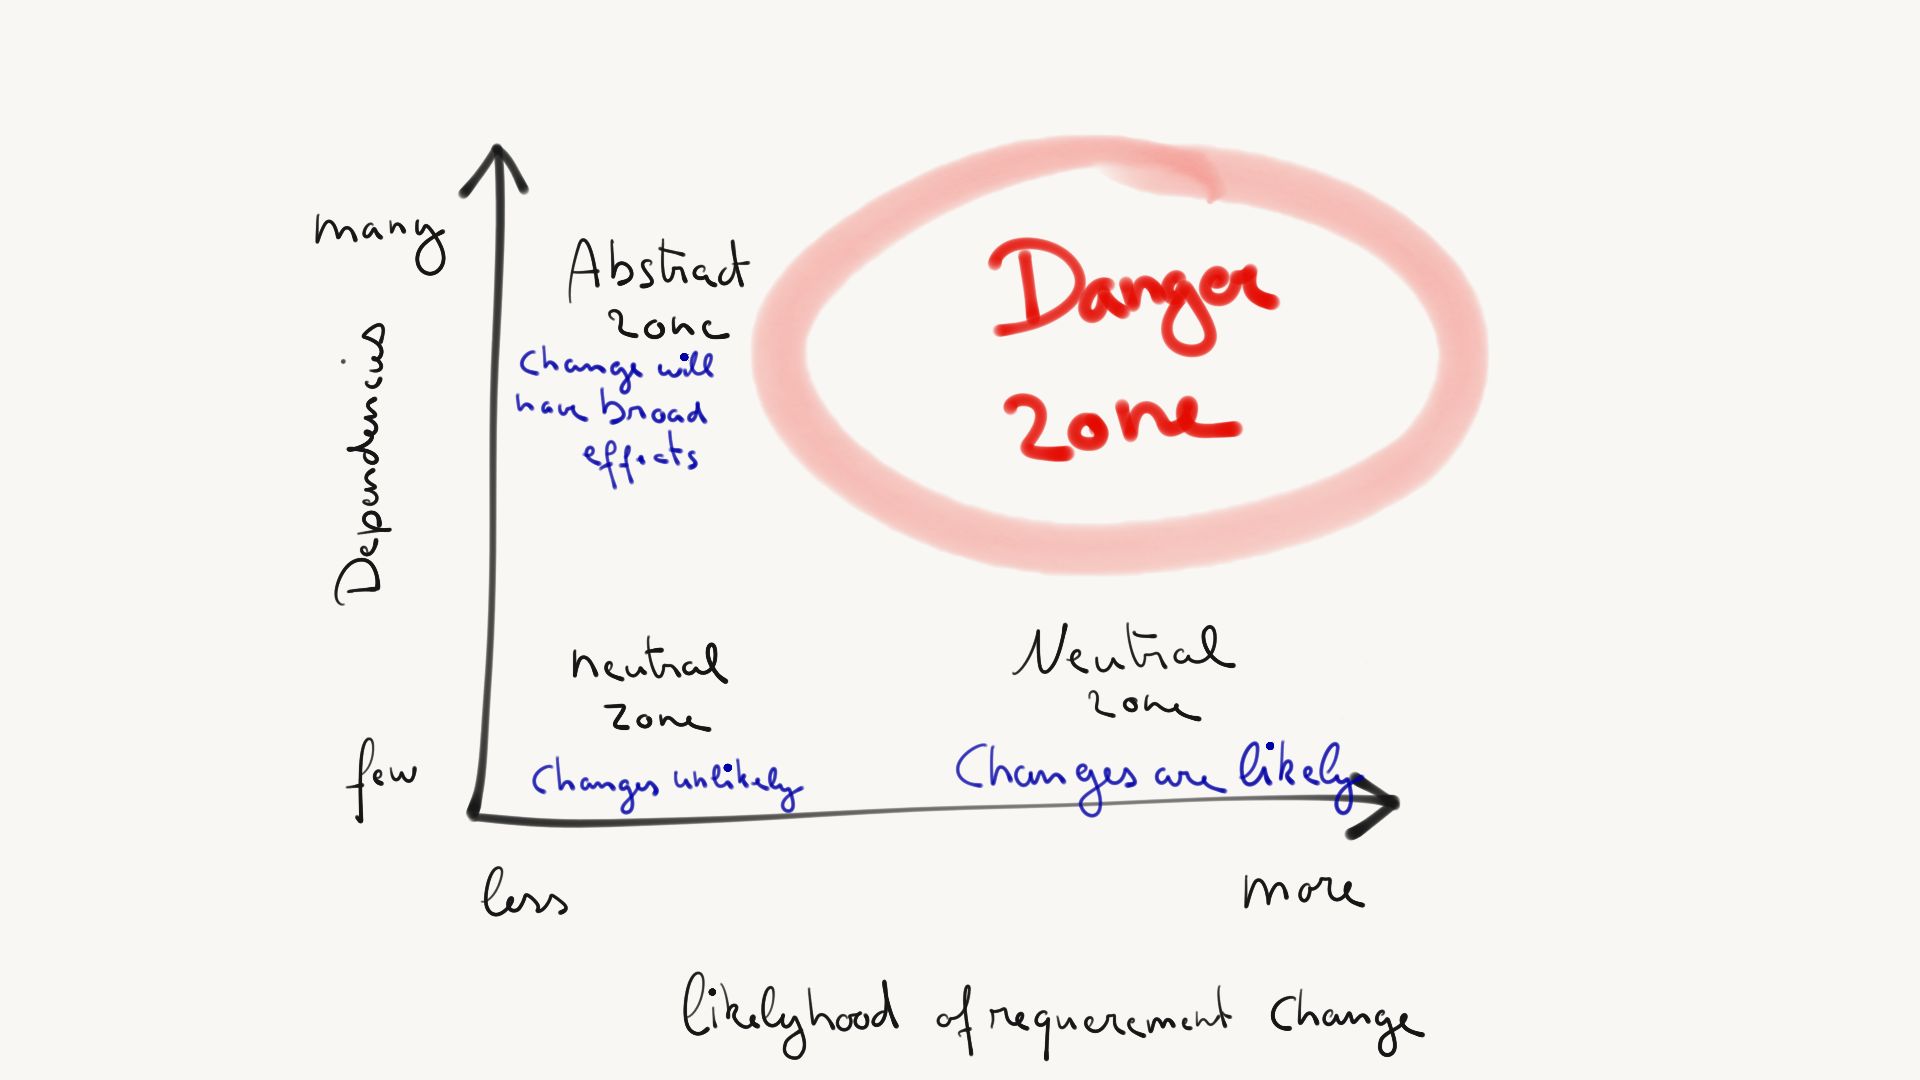 many
Dependencies
few
Abstract
zone
Change will
have broad
effects
Danger
zone
neutral
zone
Changes unlikely
Neutral
zone
Changes are likely
less
more
likelyhood of requerement change